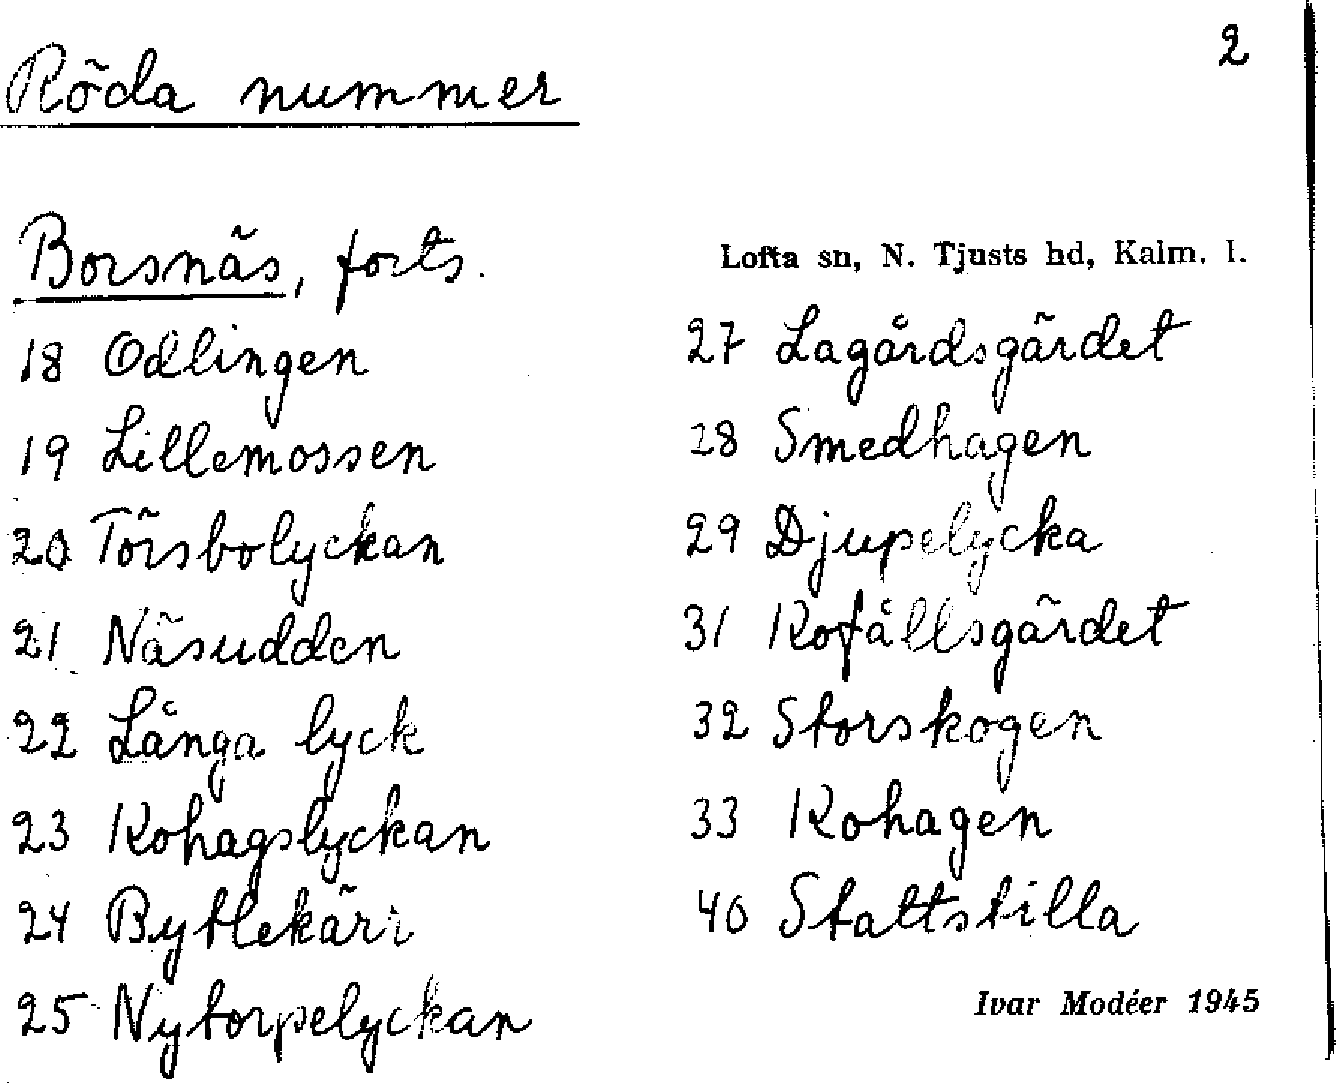 2
Röda nummer
Borsnäs, forts.
Lofta sn, N. Tjusts hd, Kalm. l.
18 Odlingen
19 Lillemossen
20 Törsbolyckan
21 Näsudden
22 Långa lyck
23 Kohagslyckan
24 Byttekärr
25 Nytorpelyckan
27 Lagårdsgärdet
28 Smedhagen
29 Djupelycka
31 Kofållsgärdet
32 Storskogen
33 Kohagen
40 Staltstilla
Ivar Modéer 1945